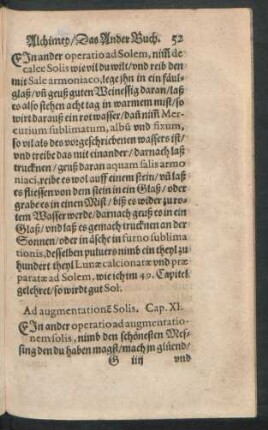 Alchimey/Das Ander Buch. 52
EIn ander operatio ad Solem, nim̃ de
calce Solis wie vil du wilt/vnd reib den
mit Sale armoniaco, lege jhn in ein fäul-
glaß/vñ geuß guten Weinessig daran/laß
es also stehen acht tag in warmem mist/so
wirt darauß ein rot wasser/dañ nim̃ Mer-
curium sublimatum, albũ vnd fixum,
so vil als des vorgeschriebenen wassers ist/
vnd treibe das mit einander/darnach laß
trucknen/geuß daran aquam salis armo-
niaci, reibe es wol auff einem stein/vñ laß
es fliessen von dem stein in ein Glaß/oder
grabe es in einen Mist/biß es wider zu ro-
tem Wasser werde/darnach geuß es in ein
Glaß/vnd laß es gemach trucknen an der
Sonnen/oder in äsche in furno sublima
tionis, desselben puluers nimb ein theyl zu
hundert theyl Lunæ calcionatæ vnd præ
paratæ ad Solem, wie ich im 49. Capitel
gelehret/so wirdt gut Sol.
Ad augmentationẽ Solis. Cap. XI.
EIn ander operatio ad augmentatio-
nem solis, nimb den schönesten Mes-
sing den du haben magst/mach jn glüend/
G iiij vnd